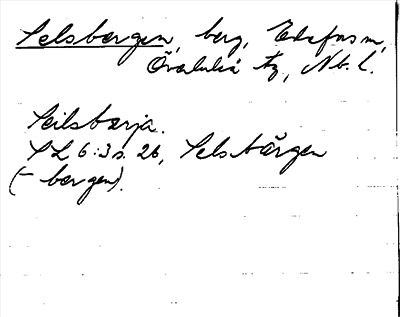 Selsbergen, berg, Edefors sn,
Överluleå tg, Nb. l.
Seilsbærja.
SL 6:3 s. 26, Selsbärgen
(- bergen).